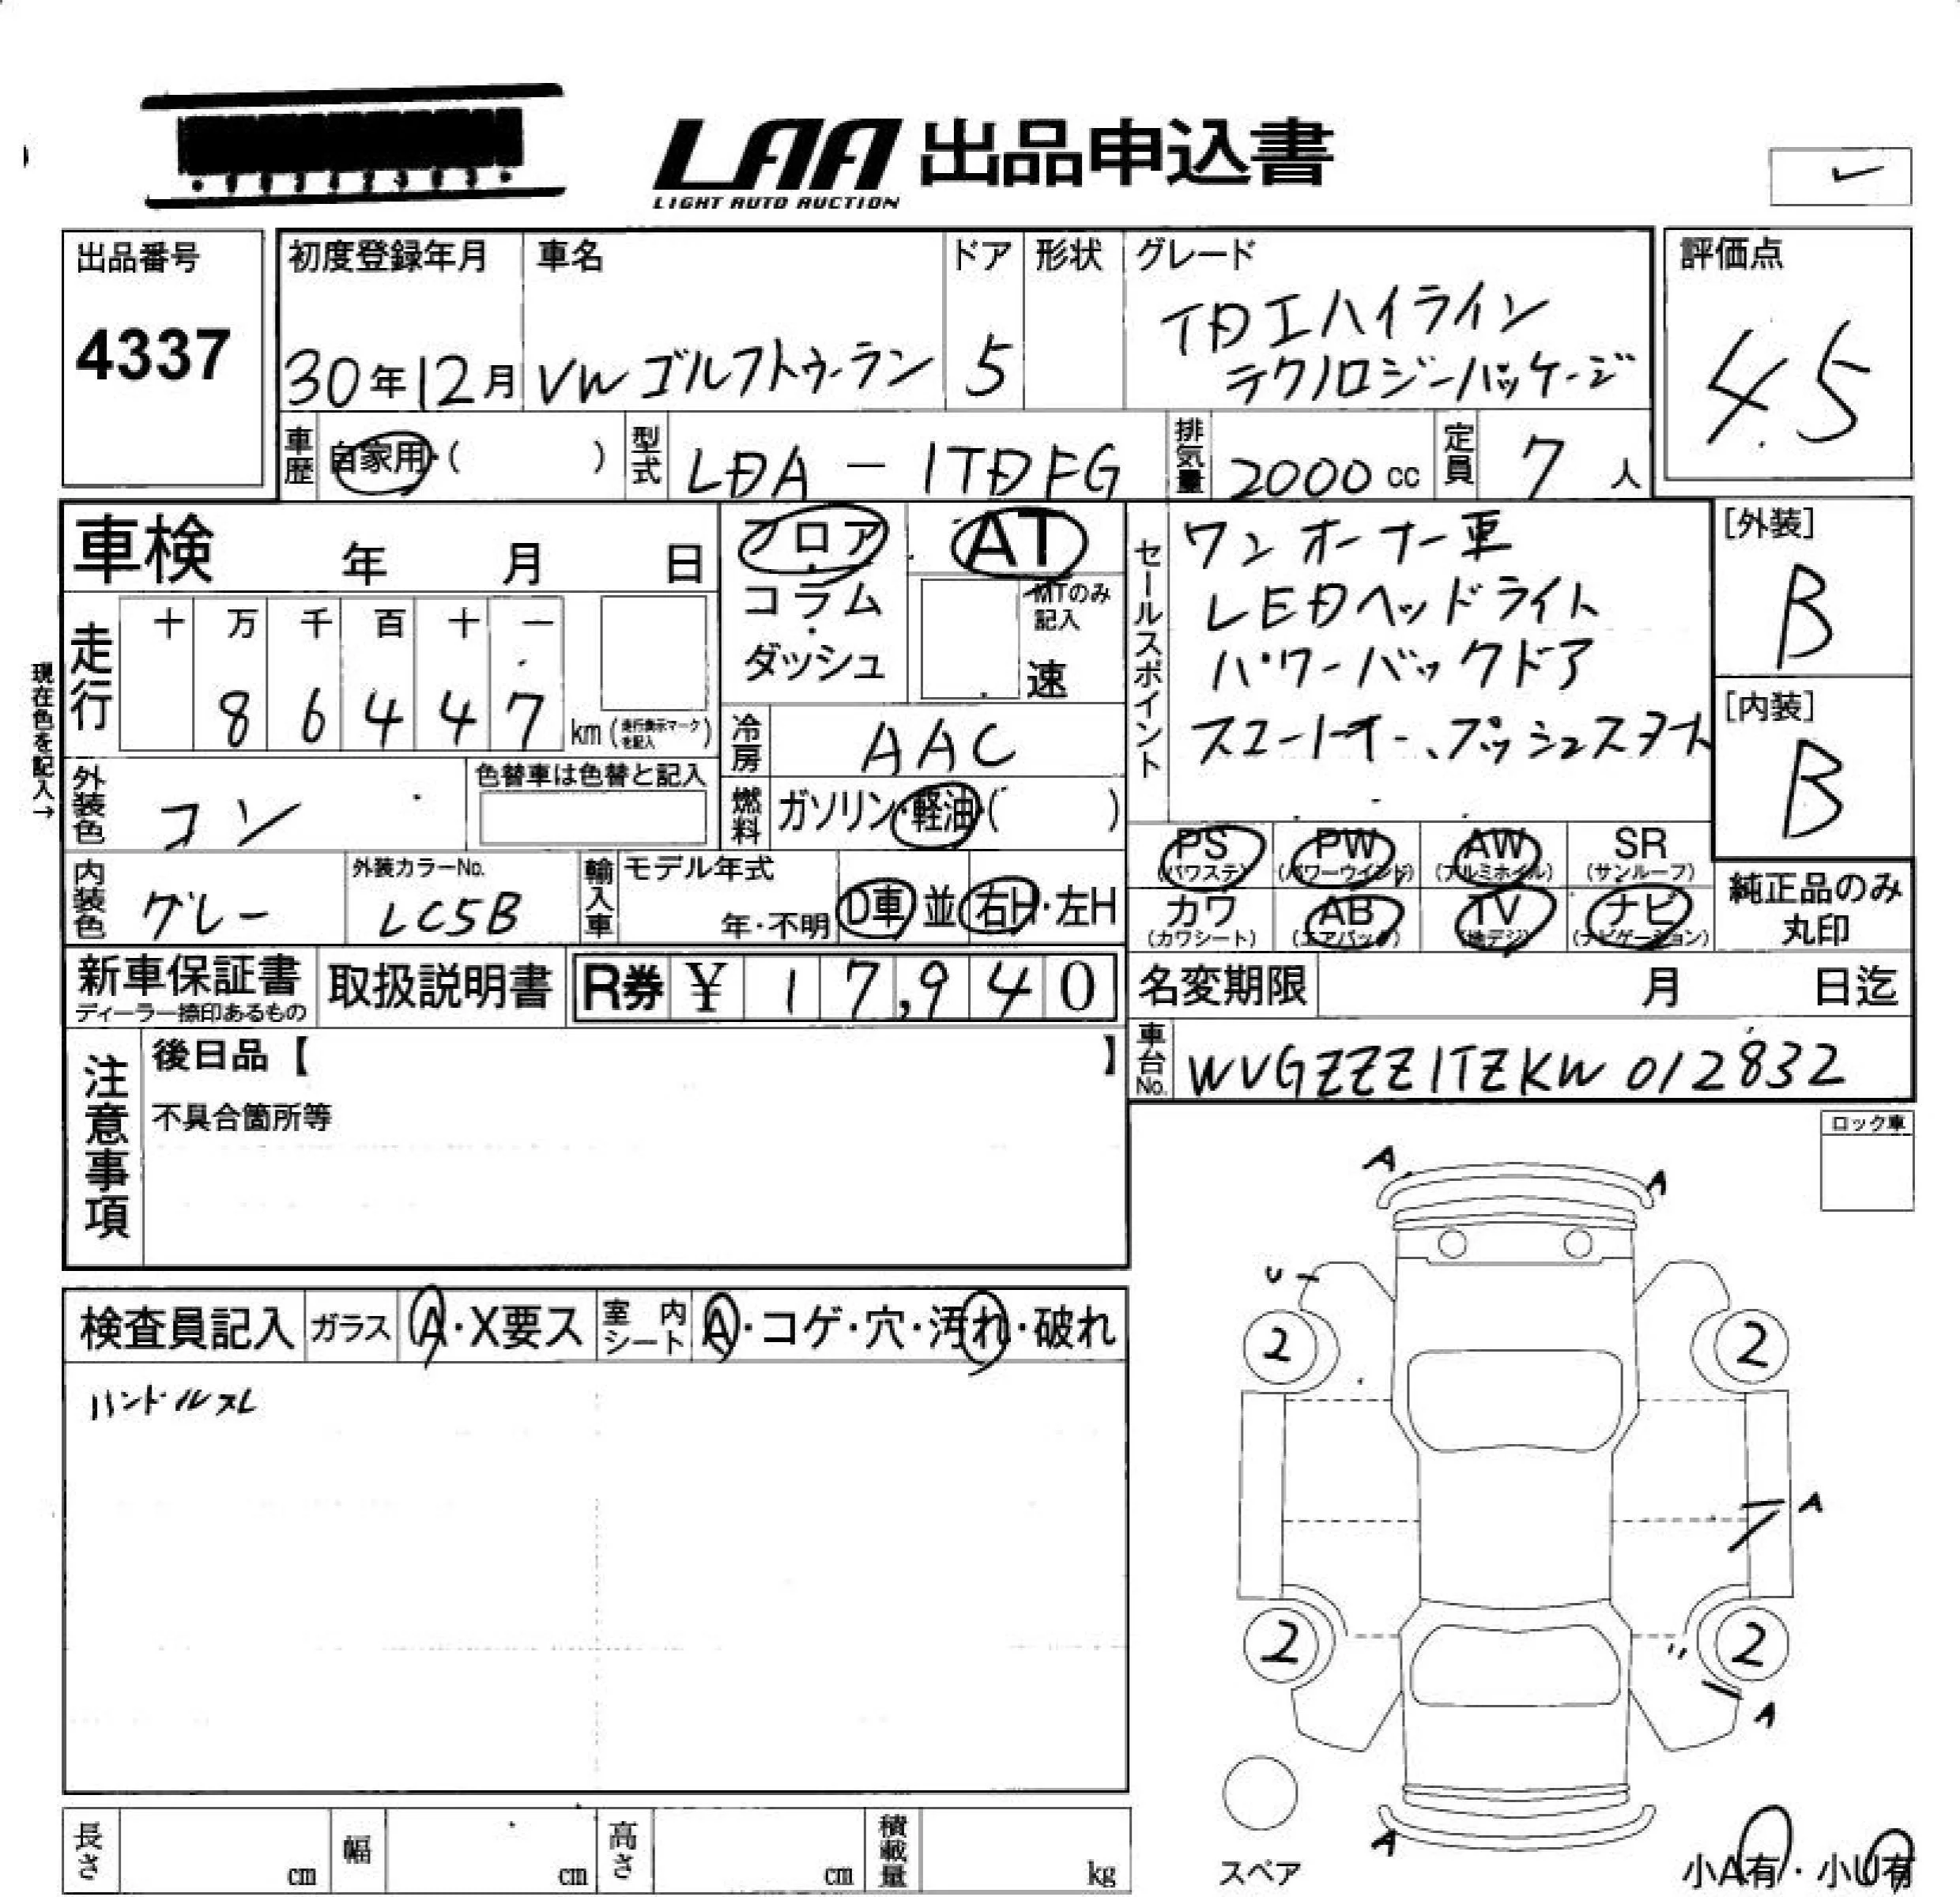 LAA 出品申込書
LIGHT AUTO AUCTION
出品番号
4337
初度登録年月
30年12月
車名
VW ゴルフトゥーラン
ドア
5
形状
グレード
TDIハイライン
テクノロジーパッケージ
評価点
4.5
車歴
自家用・( )
型式
LDA-1TDFG
排気量
2000 cc
定員
7 人
車検 年 月 日
フロア・コラム・ダッシュ
AT
MTのみ記入
速
セールスポイント
ワンオーナー車
LEDヘッドライト
パワーバックドア
スマートキー、プッシュスタート
[外装]
B
[内装]
B
現在色を記入→
走行
十 万 千 百 十 一
8 6 4 4 7
km (走行表示マークを記入)
冷房
AAC
外装色
コン
色替車は色替と記入
燃料
ガソリン・軽油・( )
PS (パワステ)
PW (パワーウインド)
AW (アルミホイル)
SR (サンルーフ)
内装色
グレー
外装カラーNo.
LC5B
輸入車
モデル年式
年・不明
D車 並 右H・左H
カワ (カワシート)
AB (エアバック)
TV (地デジ)
ナビ (ナビゲーション)
純正品のみ
丸印
新車保証書
ディーラー捺印あるもの
取扱説明書
R券 ¥ 17,940
名変期限 月 日迄
車台No.
WVGZZZ1TZKW012832
注意事項
後日品【 】
不具合箇所等
ロック車
検査員記入
ガラス
A・X要ス
室内シート
A・コゲ・穴・汚れ・破れ
ハンドルスレ
A
A
U
2
2
A
2
2
A
A
スペア
小A有・小U有
長さ cm
幅 cm
高さ cm
積載量 kg